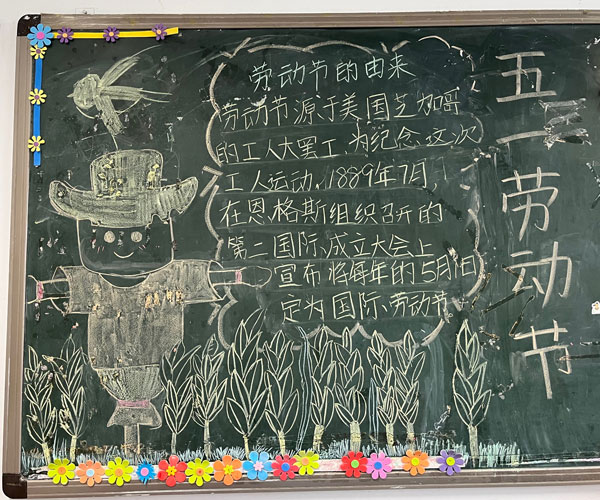 劳动节的由来
劳动节源于美国芝加哥
的工人大罢工,为纪念这次
工人运动,1889年7月,
在恩格斯组织召开的
第二国际成立大会上
宣布将每年的5月1日
定为国际劳动节
五一劳动节